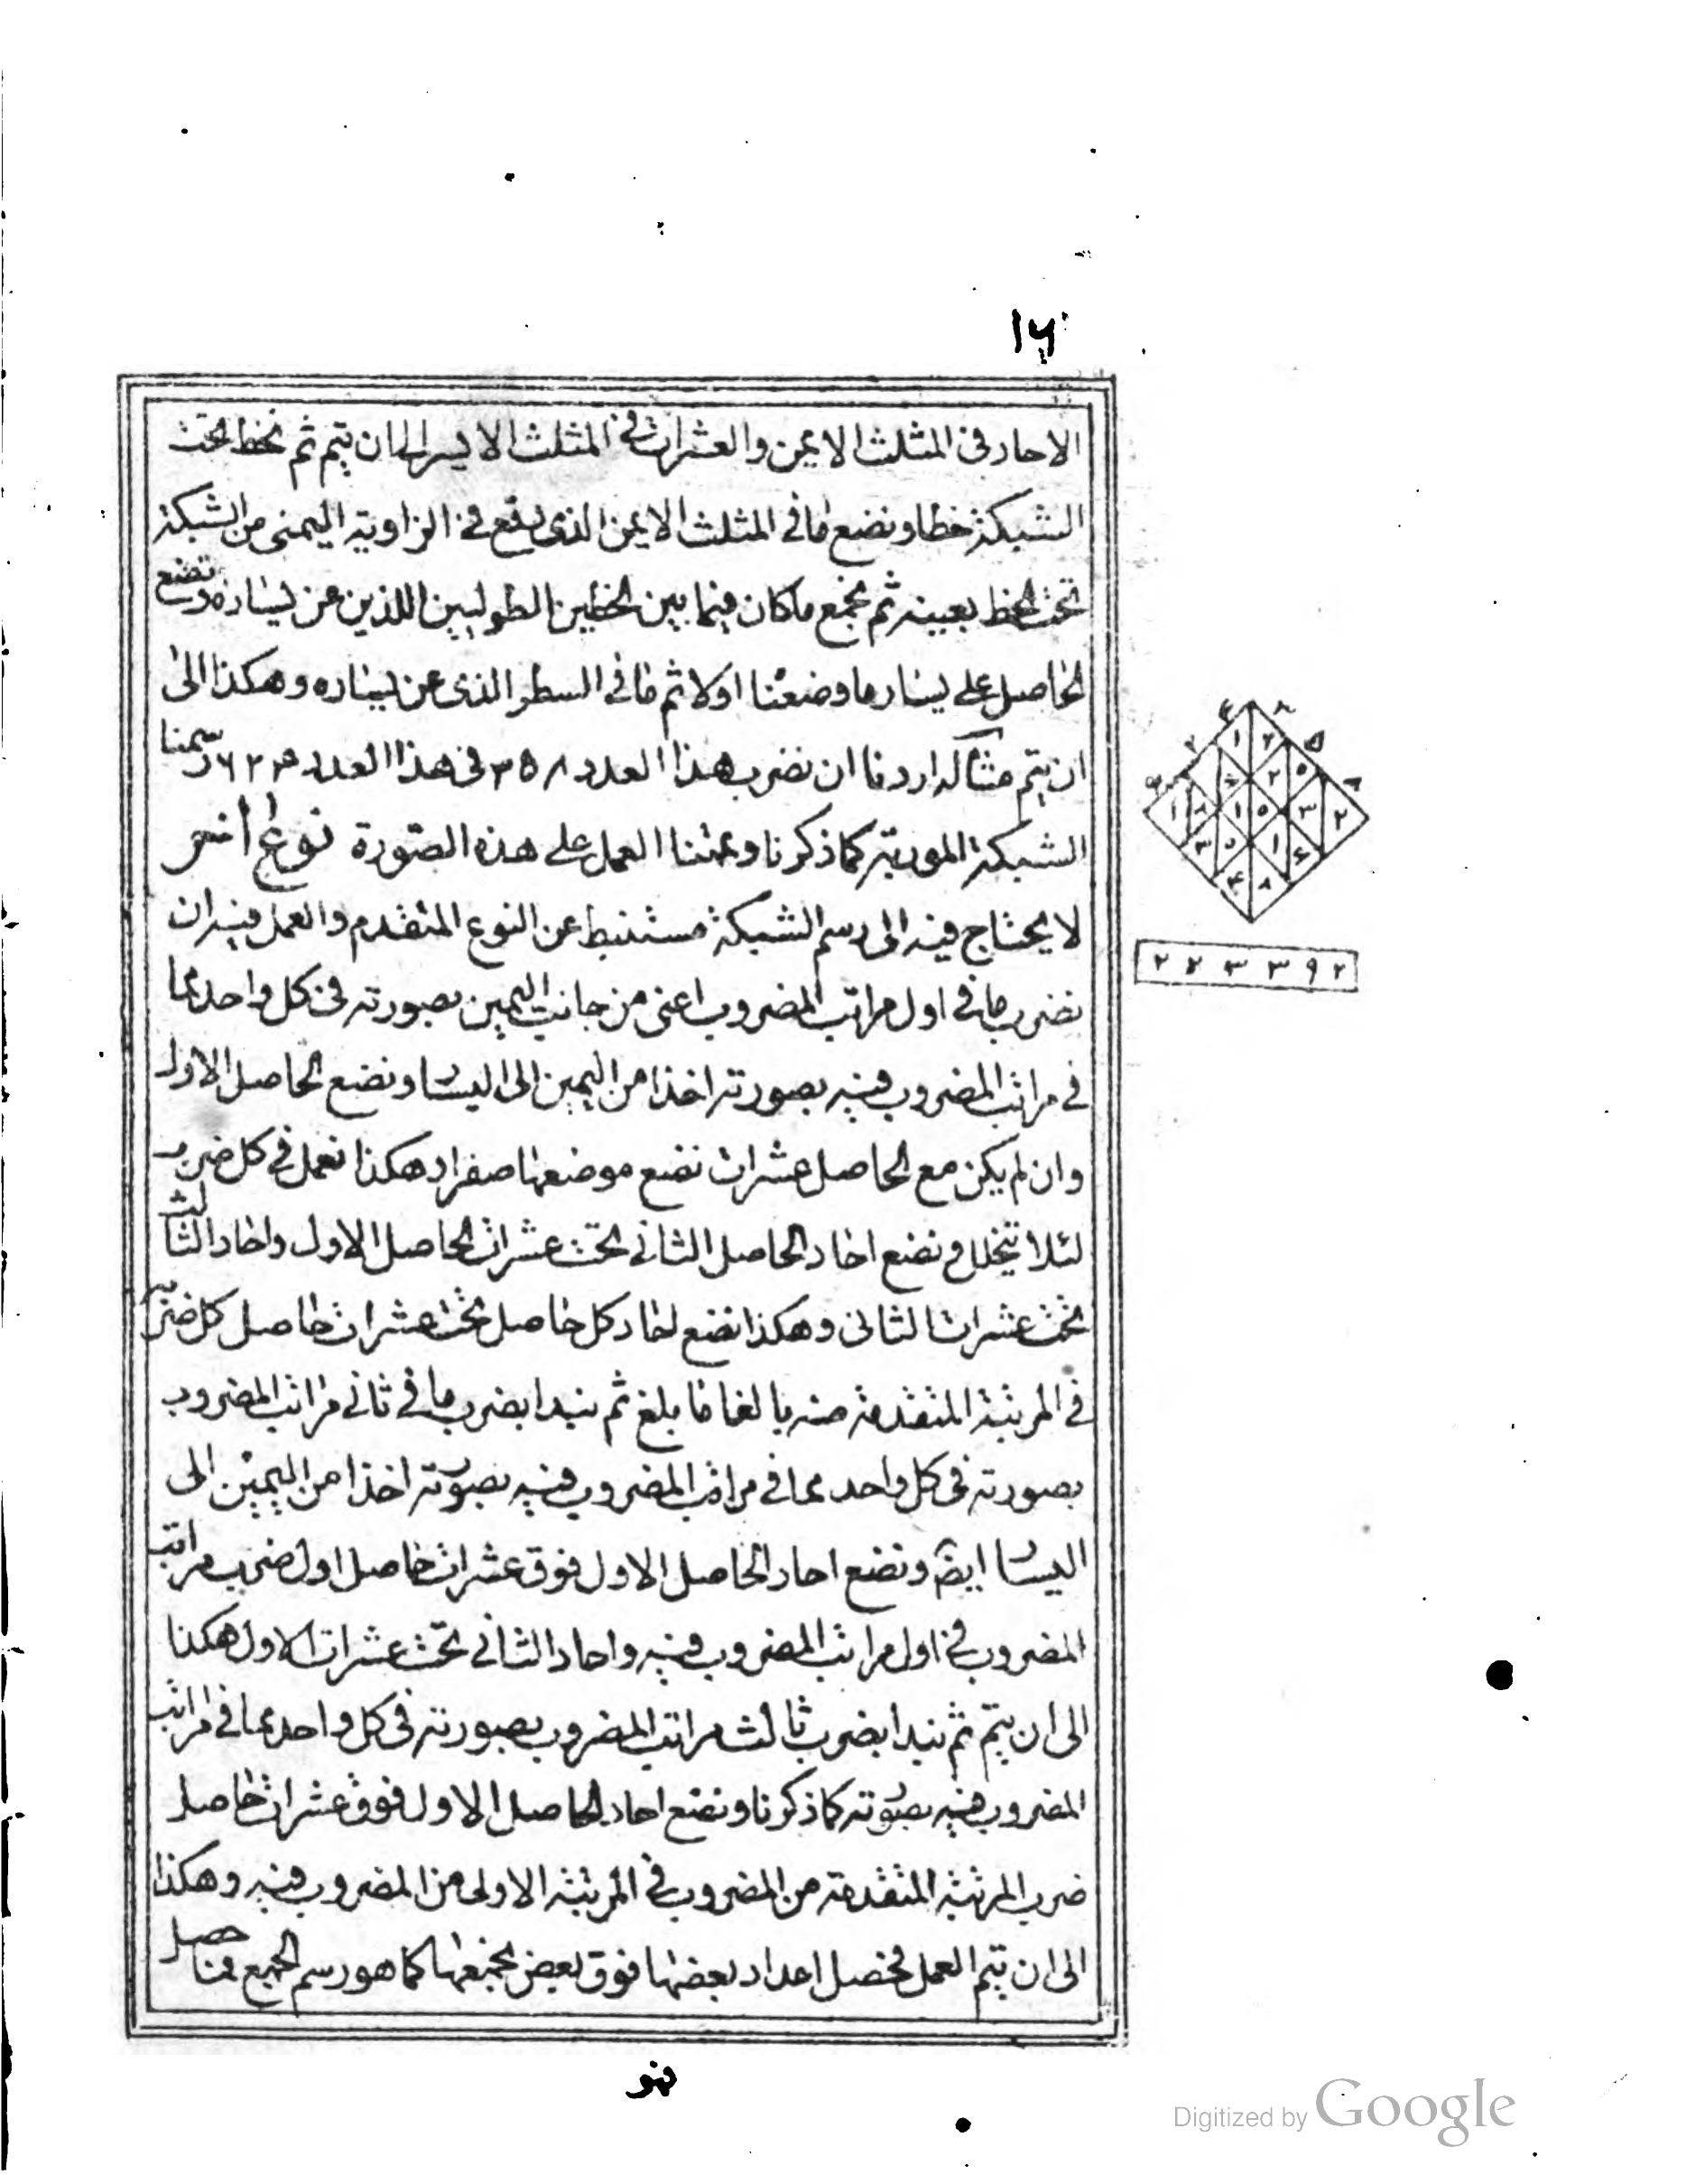 ١٦
الاحاد فى المثلث الايمن والعشرات فى المثلث الايسر الى ان يتم ثم نخط تحت
الشبكة خطا و نضع ما فى المثلث الايمن الذى يقع فى الزاوية اليمنى من الشبكة
تحت الخط بعينه ثم نجمع ما كان فيما بين الخطين الطوليين اللذين عن يساره و نضع
الحاصل على يسار ما وضعنا اولا ثم ما فى السطر الذى عن يساره و هكذا الى
ان يتم مثاله اردنا ان نضرب هذا العدد ٣٥٨ فى هذا العدد ٦٢٤ رسمنا
الشبكة الموربة كما ذكرنا و عملنا العمل على هذه الصورة نوع اخر
لا يحتاج فيه الى رسم الشبكة مستنبط عن النوع المتقدم والعمل فيه ان
نضرب ما فى اول مراتب المضروب اعنى من جانب اليمين بصورته فى كل واحد مما
فى مراتب المضروب فيه بصورته اخذا من اليمين الى اليسار و نضع الحاصل الاول
وان لم يكن مع الحاصل عشرات نضع موضعها صفرا و هكذا نعمل فى كل ضرب
لئلا يتخلل و نضع احاد الحاصل الثانى تحت عشرات الحاصل الاول و احاد الثالث
تحت عشرات الثانى و هكذا نضع احاد كل حاصل تحت عشرات حاصل كل ضرب
فى المرتبة المتقدمة منه بالغا ما بلغ ثم نبدا بضرب ما فى ثانى مراتب المضروب
بصورته فى كل واحد مما فى مراتب المضروب فيه بصورته اخذا من اليمين الى
اليسار ايضا و نضع احاد الحاصل الاول فوق عشرات حاصل اول ضرب مراتب
المضروب فى اول مراتب المضروب فيه و احاد الثانى تحت عشرات الاول هكذا
الى ان يتم ثم نبدا بضرب ثالث مراتب المضروب بصورته فى كل واحد مما فى مراتب
المضروب فيه بصورته كما ذكرنا و نضع احاد الحاصل الاول فوق عشرات حاصل
ضرب المرتبة المتقدمة من المضروب فى المرتبة الاولى من المضروب فيه و هكذا
الى ان يتم العمل فحصل اعداد بعضها فوق بعض نجمعها كما هو رسم الجمع فما حصل
فهو
٢ ٢ ٣ ٣ ٩ ٢
Digitized by Google